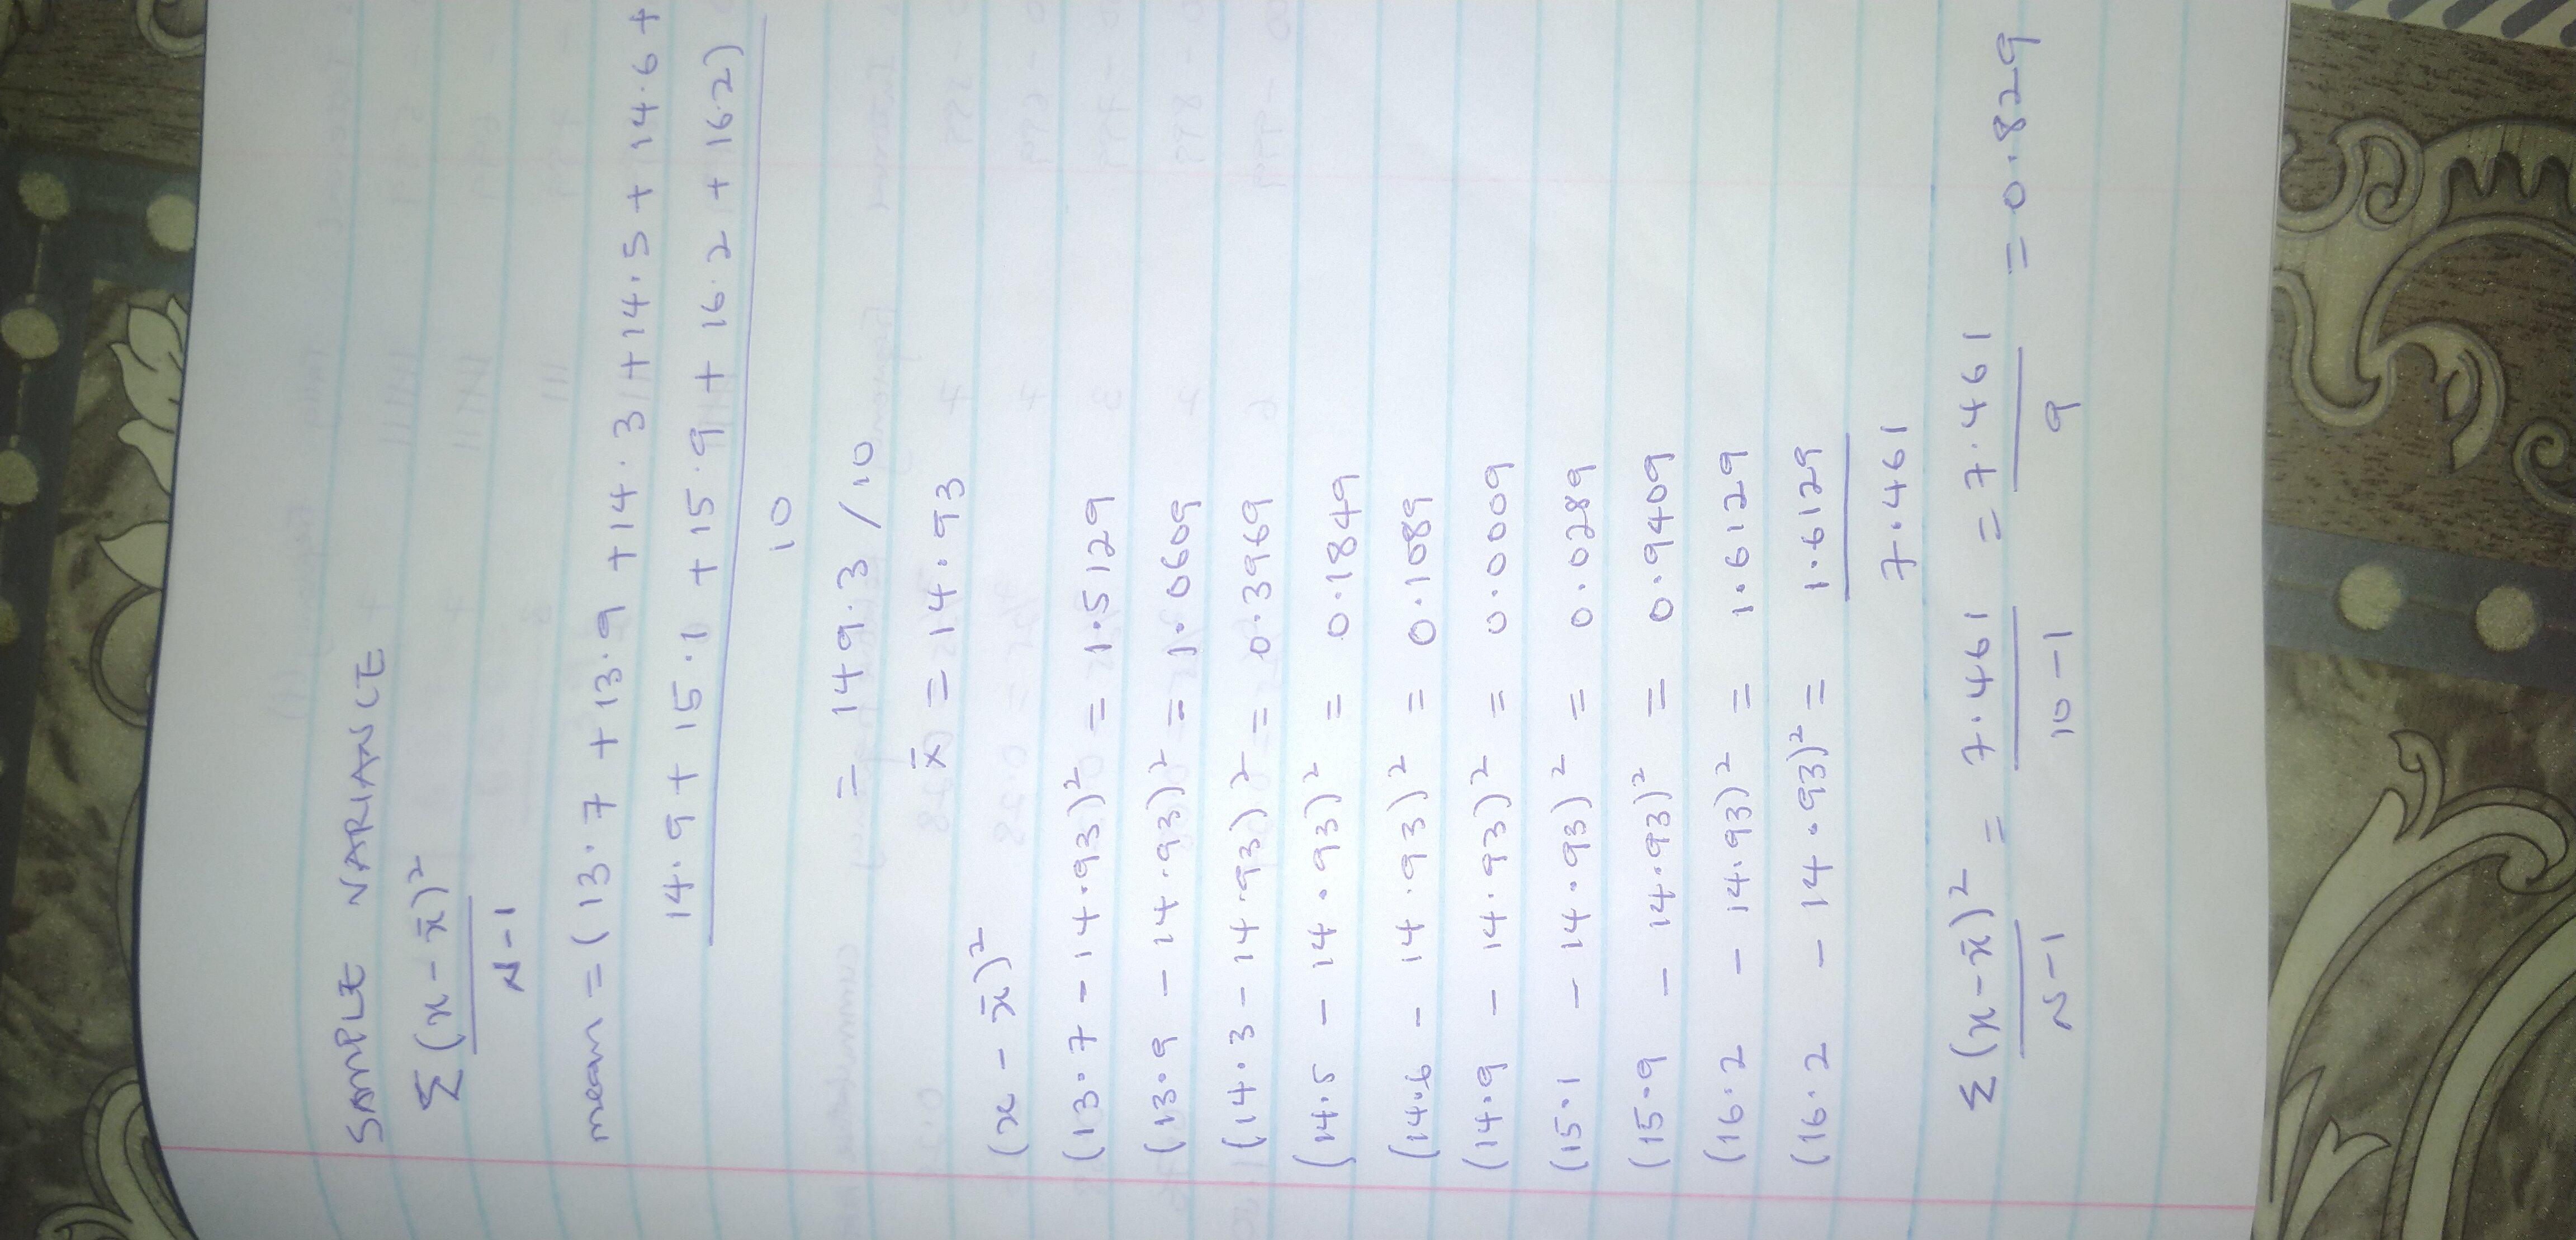 SAMPLE VARIANCE
Σ(x - x̄)²
N-1
mean = (13.7 + 13.9 + 14.3 + 14.5 + 14.6 +
14.9 + 15.1 + 15.9 + 16.2 + 16.2)
10
= 149.3 / 10
x̄ = 14.93
(x - x̄)²
(13.7 - 14.93)² = 1.5129
(13.9 - 14.93)² = 1.0609
(14.3 - 14.93)² = 0.3969
(14.5 - 14.93)² = 0.1849
(14.6 - 14.93)² = 0.1089
(14.9 - 14.93)² = 0.0009
(15.1 - 14.93)² = 0.0289
(15.9 - 14.93)² = 0.9409
(16.2 - 14.93)² = 1.6129
(16.2 - 14.93)² = 1.6129
7.461
Σ(x - x̄)² = 7.461 = 7.461 = 0.829
N-1 10-1 9